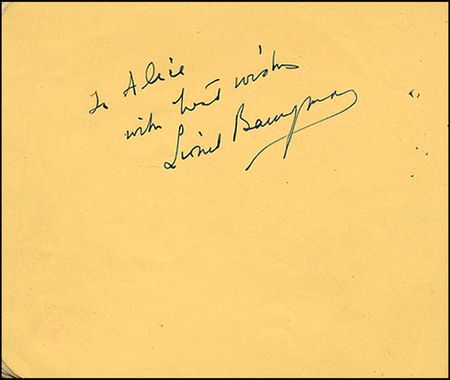 To Alice
with best wishes
Lionel Barrymore